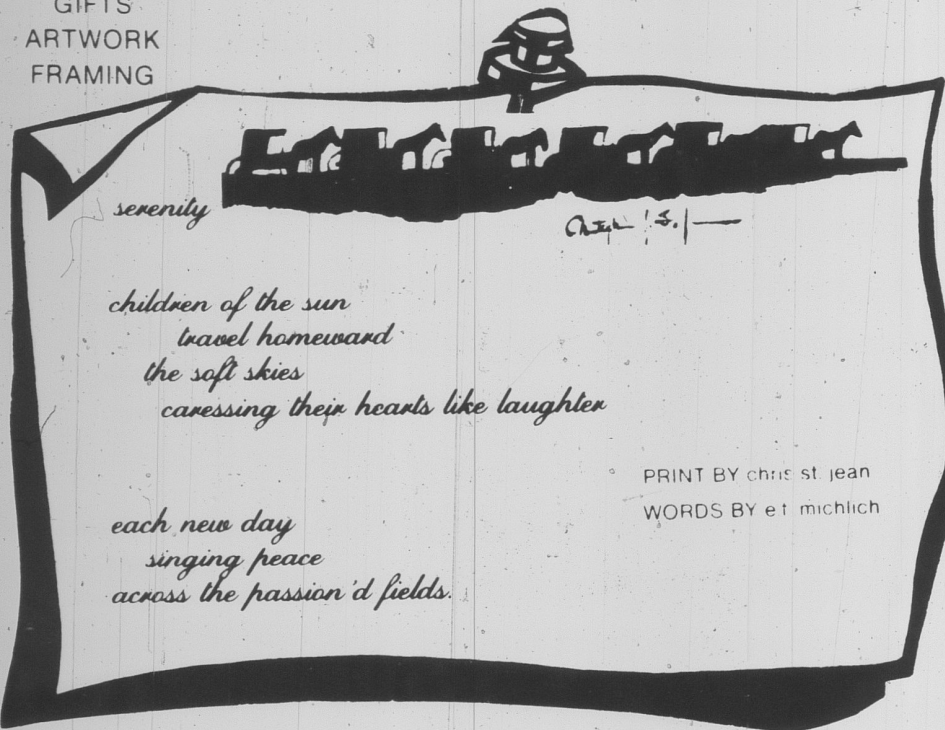 GIFTS
ARTWORK
FRAMING
serenity
children of the sun
travel homeward
the soft skies
caressing their hearts like laughter
PRINT BY chris st. jean
WORDS BY e t michlich
each new day
singing peace
across the passion'd fields.